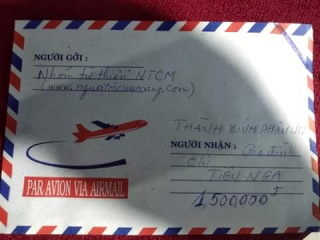 NGƯỜI GỞI :
Nhóm từ thiện NTCM
THÀNH KÍNH PHÂN ƯU
NGƯỜI NHẬN : Gia đình
Chị
TIÊN NGA
1,500,000đ
PAR AVION VIA AIRMAIL